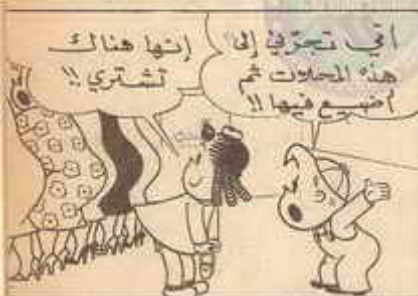 أمي تجرّني إلى
هذه المحلات ثم
أضيع فيها !!
إنها هناك
تشتري !!